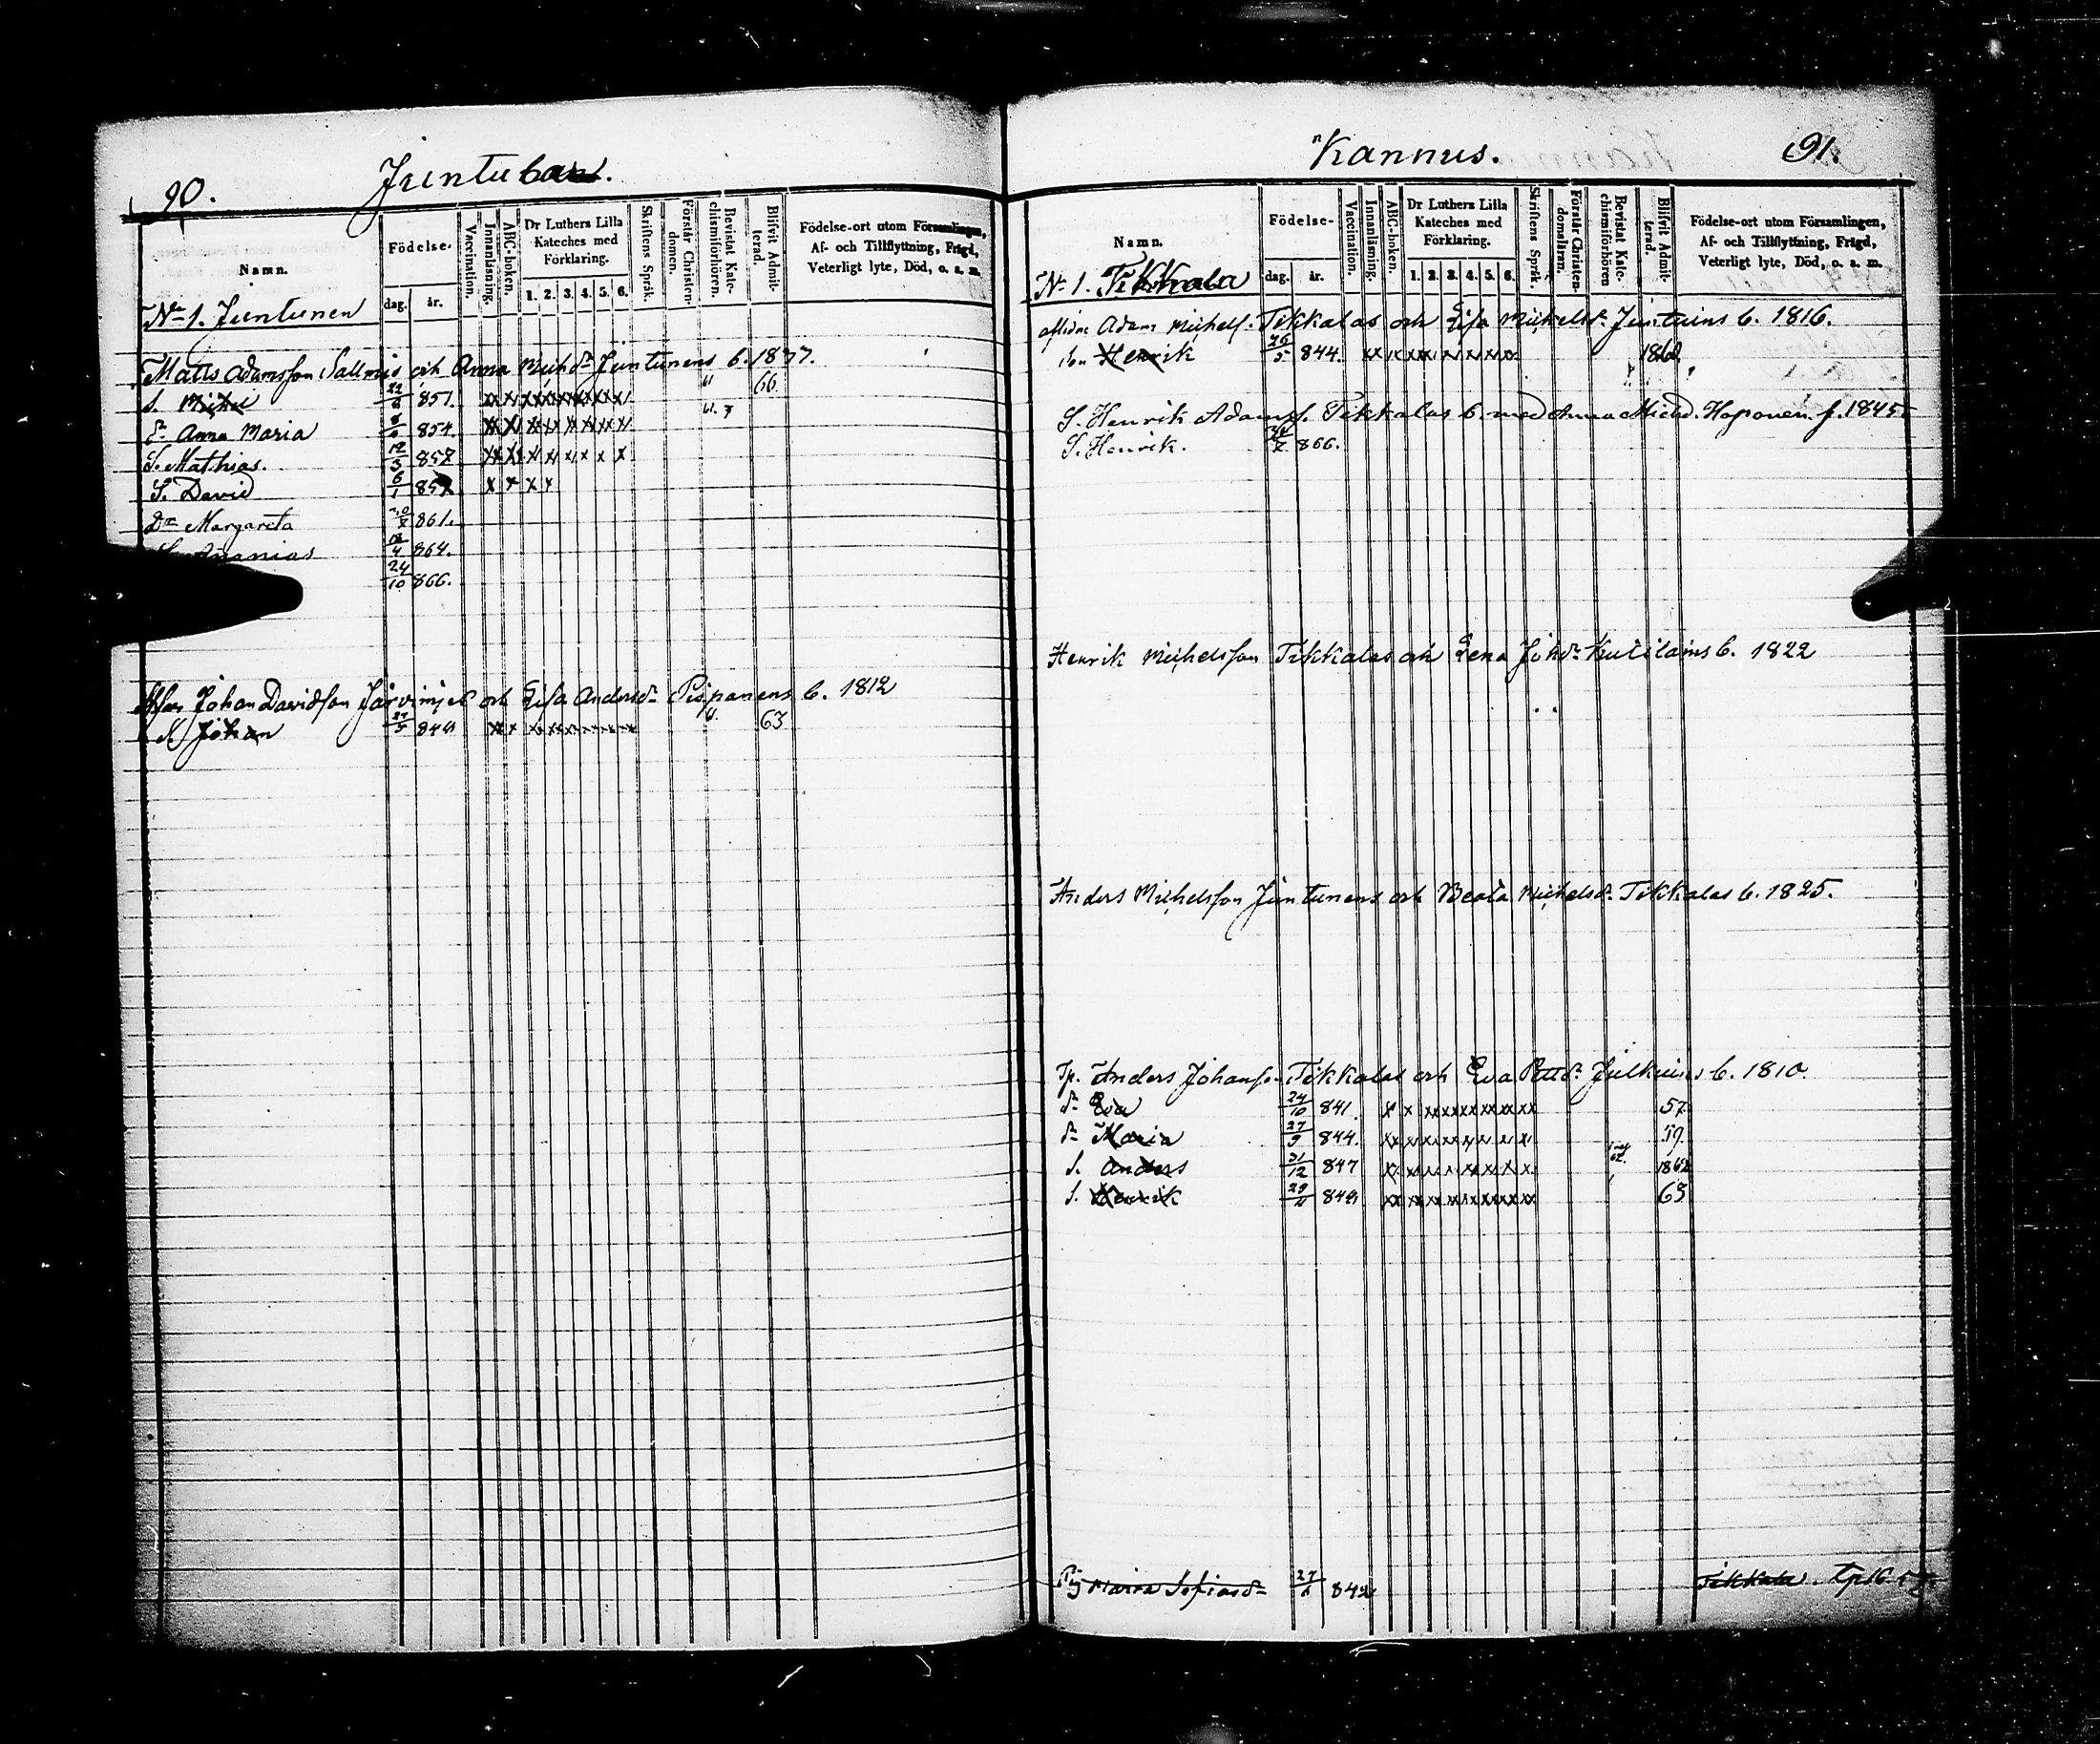 90.
Juntu
Namn.
Födelse-
dag. år.
Vaccination.
Innanläsning.
ABC-boken.
Dr Luthers Lilla Kateches med Förklaring.
1. 2. 3. 4. 5. 6.
Skriftens Språk.
Förstår Christen-domen.
Bevistat Kate-chismiförhören.
Blifvit Admit-terad.
Födelse-ort utom Församlingen, Af- och Tillflyttning, Frägd, Veterligt lyte, Död, o. s. m.
No 1. Juntunen
Matts Adamsson Sallmis och Anna Michdr Juntunens b.
S. Michel 851. 66
dr Anna Maria 854.
S. Mathias. 12/3 857
S. David 6/1
Dr Margareta 861.
Ananias 4 864.
24/10 866.
Johan Davidsson Järvinjes och Lisa Andersdr Pispanens b. 1812
S. Johan 5 849 63
Kannus.
91.
Namn.
Födelse-
dag. år.
Vaccination.
Innanläsning.
ABC-boken.
Dr Luthers Lilla Kateches med Förklaring.
1. 2. 3. 4. 5. 6.
Skriftens Språk.
Förstår Christen-domsläran.
Bevistat Kate-chismiförhören
Blifvit Admit-terad.
Födelse-ort utom Församlingen, Af- och Tillflyttning, Frägd, Veterligt lyte, Död, o. s. m.
No 1. Tikkala
aflidne Adam Michels. Tikkalas och Lisa Michelsdr Juntuins b. 1816.
son Henrik 26/5 844.
S. Henrik Adamss. Tikkalas b. med Anna Michd. Haponen f. 1845
S. Henrik. 866.
Henrik Michelsson Tikkalas och Lena Johdr b. 1822
Anders Michelsson Juntunens och Beata Michelsdr Tikkalas b. 1825.
Tp. Anders Johanss. Tikkalas och Eva Pettdr Julkuins b. 1810.
dr Eva 24/10 841. 57
dr Maria 27/9 844. 59.
S. Anders 21/12 847 1862
S. Henrik 849 63
Pig Maria Sofiasdr 27/6 842
Tikkala.